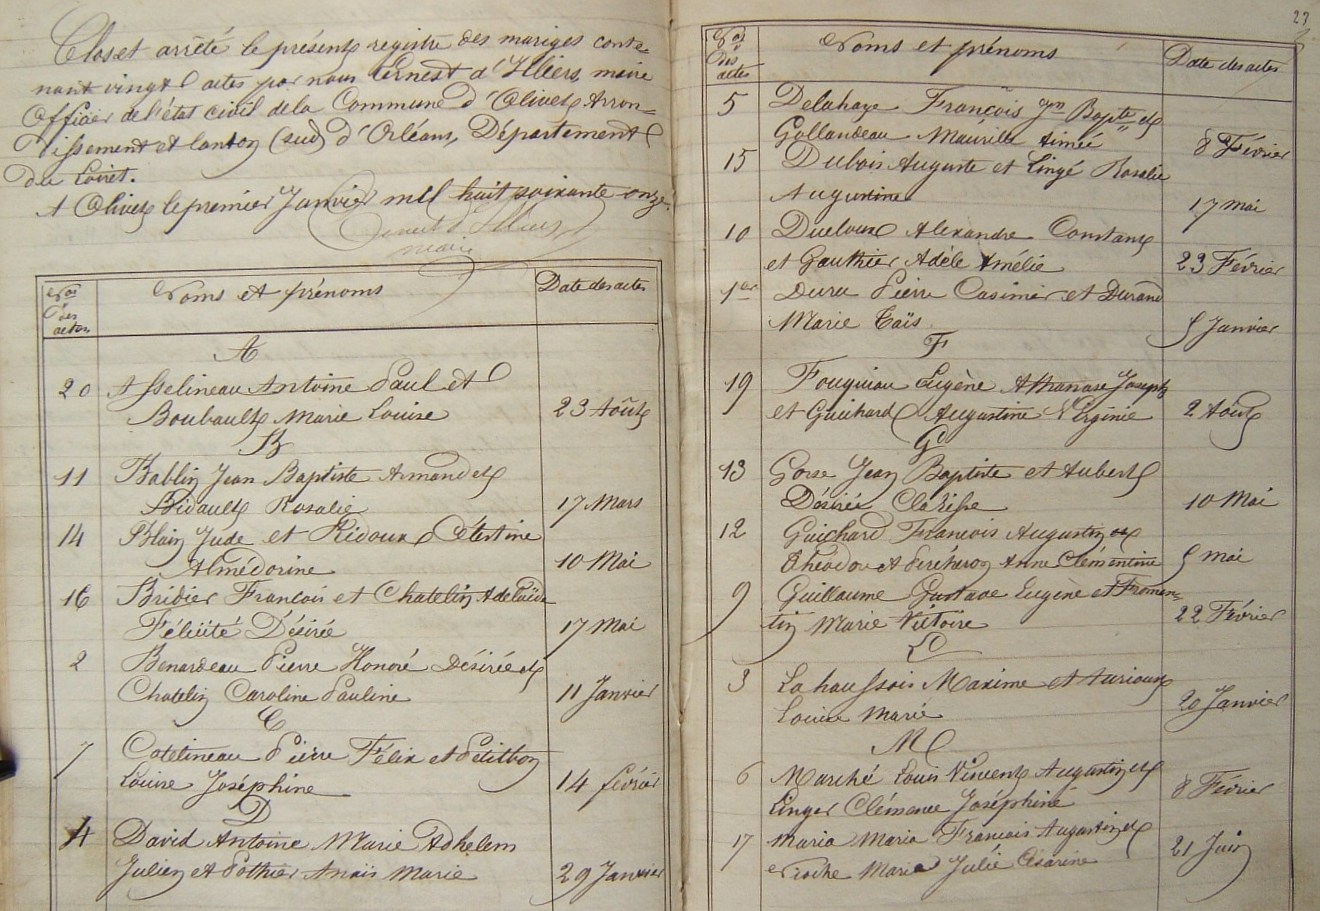 Clos et arrêté le présent registre des mariges conte
nant vingt actes par nous Ernest d'Illiers, maire
Officier de l'état civil de la Commune d'Olivet Arron-
dissement et Canton (sud) d'Orléans, Département
du Loiret.
A Olivet le premier Janvier mil huit soixante onze.
Ernest d'Illiers
maire
Nos des actes
Noms et prénoms
Date des actes
A
20 Asselineau Antoine Paul et
Boubault Marie Louise 23 Août
B
11 Bablin Jean Baptiste Armand et
Bidault Rosalie 17 Mars
14 Blain Jude et Ridoux Célestine
Almédorine 10 Mai
16 Bridier François et Chatelin Adelaïde
Félicité Désirée 17 Mai
2 Benardeau Pierre Honoré Désirée et
Chatelin Caroline Pauline 11 Janvier
C
7 Catelineau Pierre Félix et Petitbon
Louise Joséphine 14 février
D
4 David Antoine Marie Adhelem
Julien et Pothier Anaïs Marie 29 Janvier
23
Nos des actes
Noms et prénoms
Date des actes
5 Delahaye François Jean Bapte et
Gollandeau Maurille Aimée 8 Février
15 Dubois Auguste et Lingé Rosalie
Augustine 17 mai
10 Ducloux Alexandre Constant
et Gauthier Adèle Amélie 23 Février
1er Duru Pierre Casimir et Durand
Marie Taïs 5 Janvier
F
19 Fouquiau Eugène Athanase Joseph
et Guichard Augustine Virginie 2 Août
G
13 Gorse Jean Baptiste et Aubert
Désirée Clarisse 10 Mai
12 Guichard François Augustin
Théodore et Perchéron Anne Clémentine 5 mai
9 Guillaume Gustave Eugène et Fromen-
tin Marie Victoire 22 Février
L
3 Lahaussois Maxime et Aurioux
Louise Marie 20 Janvier
M
6 Marché Louis Vincent Augustin et
Linger Clémence Joséphine 8 Février
17 Maria Maria François Augustin et
Roche Marie Julie Césarine 21 Juin